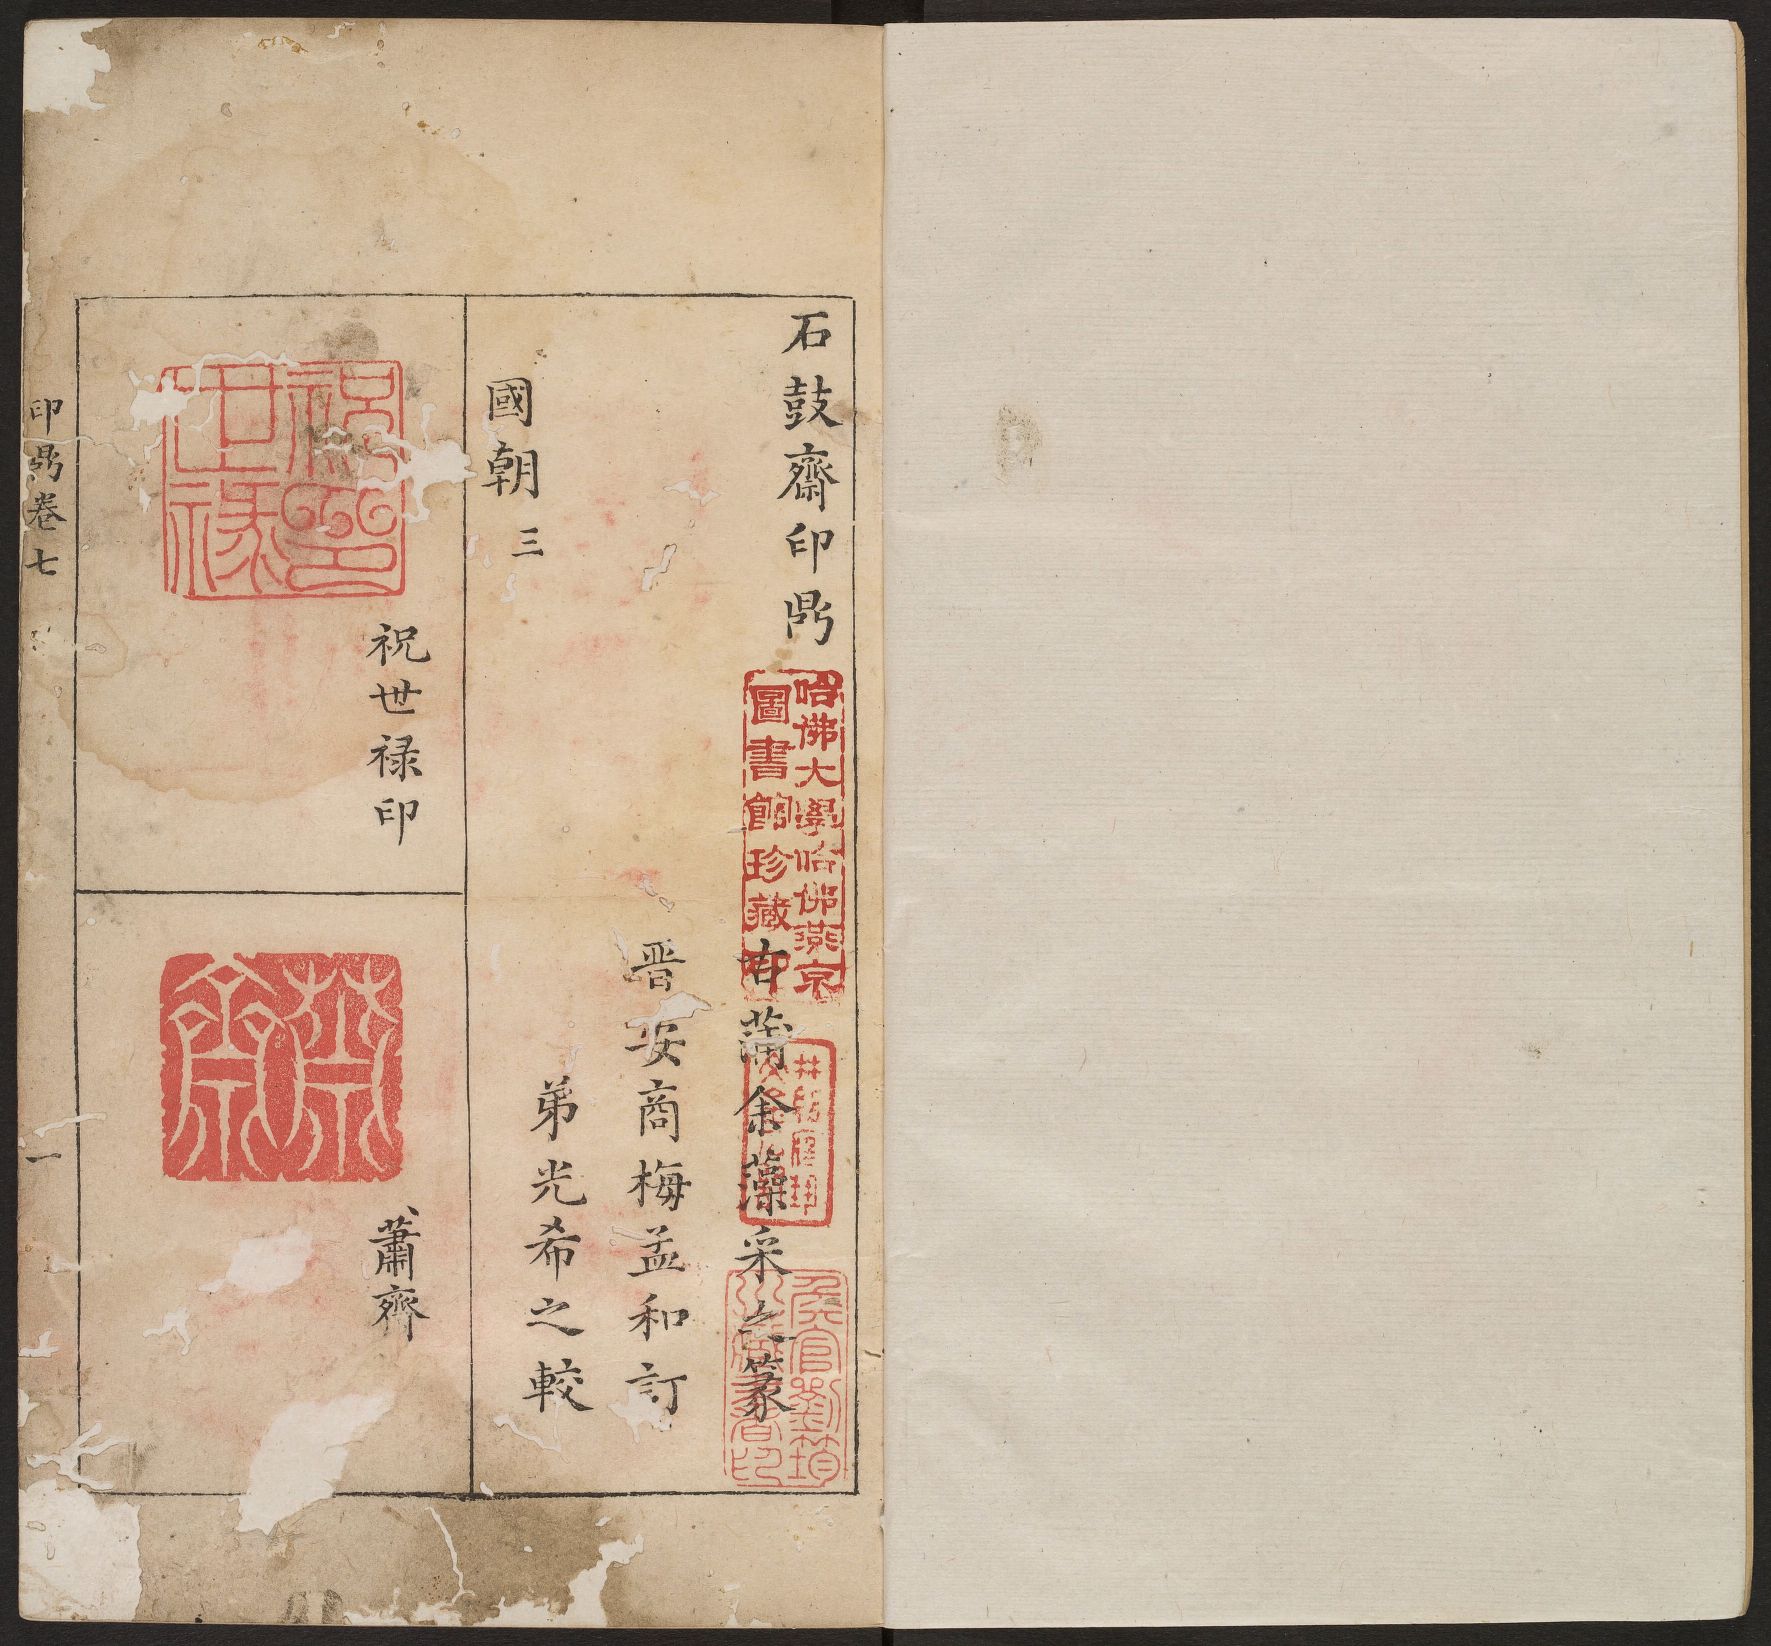 石鼓齋印鼎
哈佛大學哈佛燕京
圖書館珍藏印
古蒲余藻采之篆
侯官劉筠
晋安商梅孟和訂
弟光希之較
國朝三
祝世祿印
祝世禄印
蕭齋
印鼎卷七
一